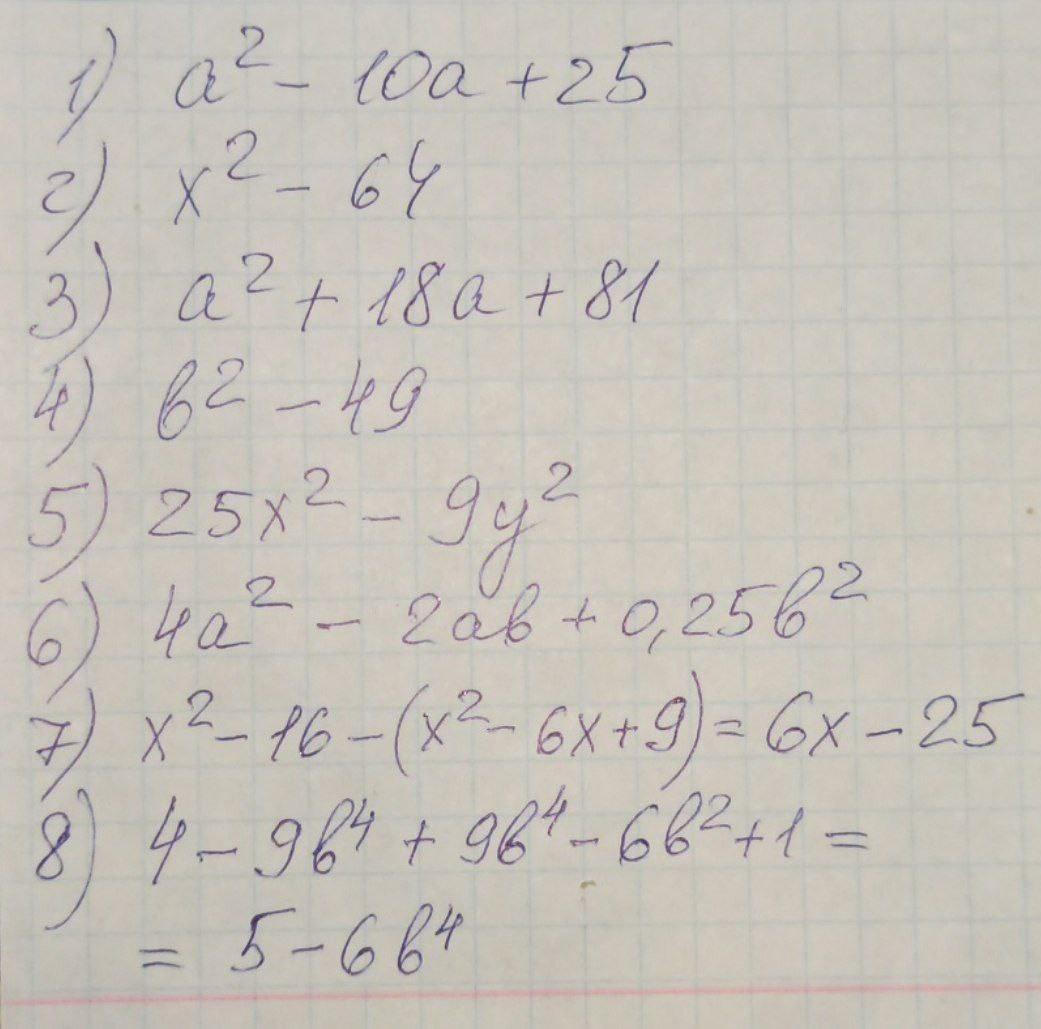 1) a² - 10a + 25
2) x² - 64
3) a² + 18a + 81
4) b² - 49
5) 25x² - 9y²
6) 4a² - 2ab + 0,25b²
7) x² - 16 - (x² - 6x + 9) = 6x - 25
8) 4 - 9b⁴ + 9b⁴ - 6b² + 1 =
= 5 - 6b⁴